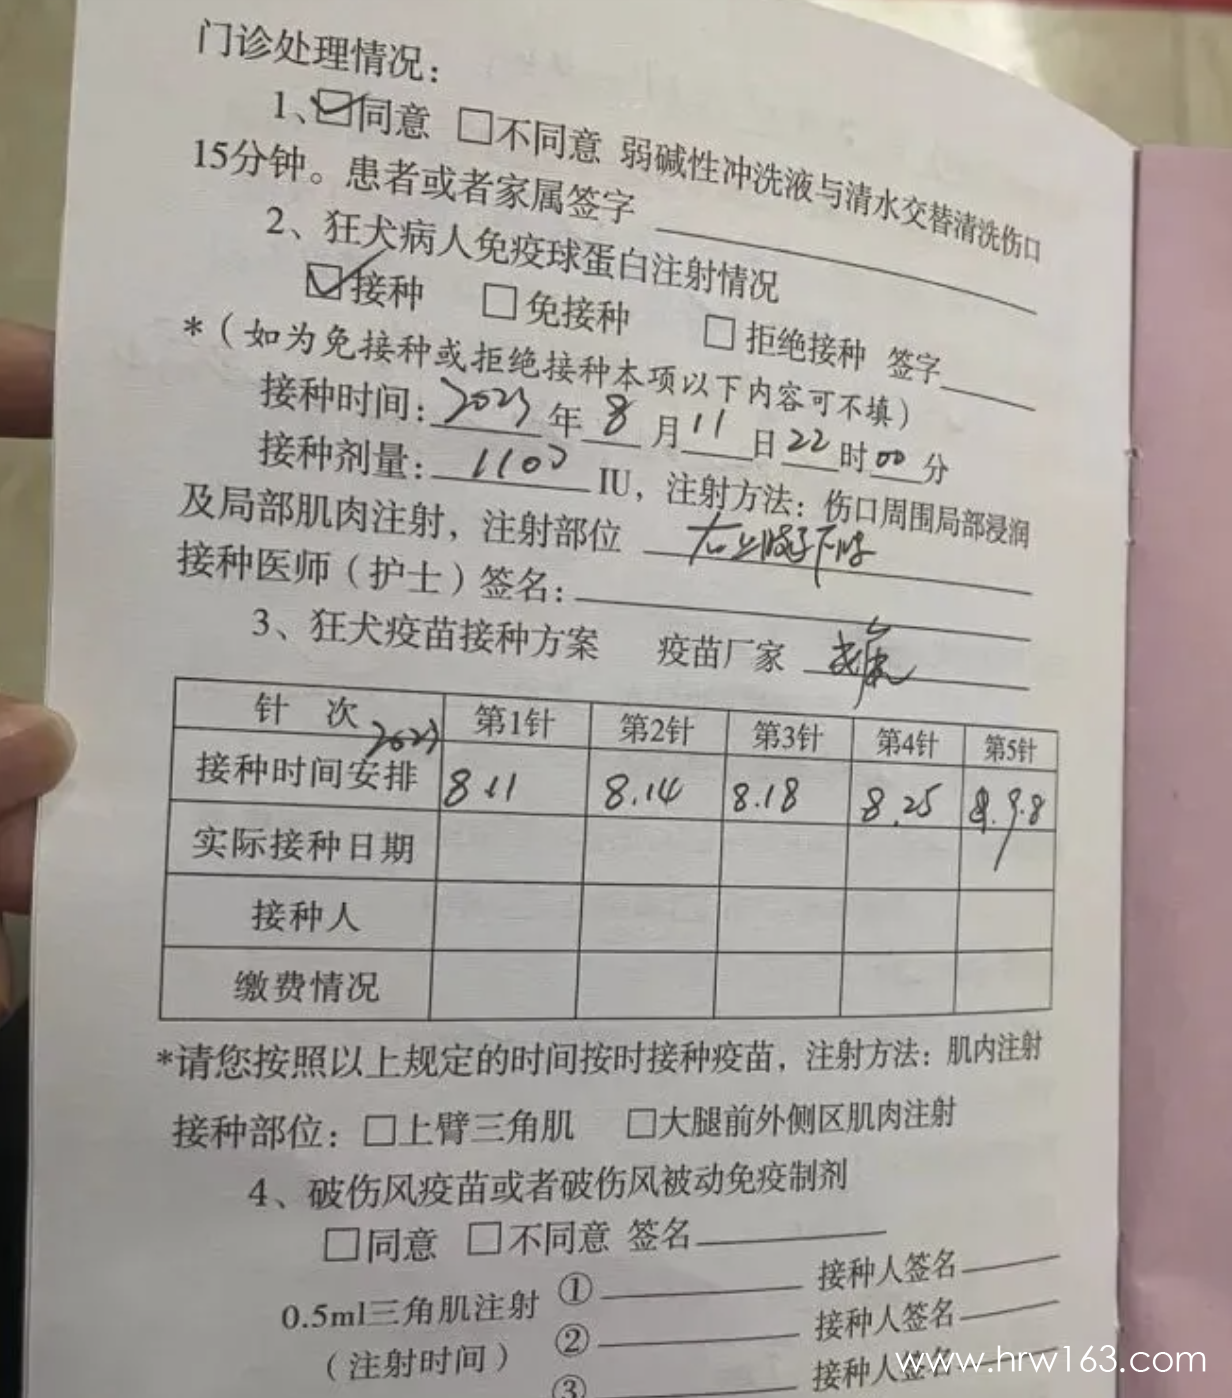 门诊处理情况：
1、☑同意 □不同意 弱碱性冲洗液与清水交替清洗伤口
15分钟。患者或者家属签字
2、狂犬病人免疫球蛋白注射情况
☑接种 □免接种 □拒绝接种 签字
*（如为免接种或拒绝接种本项以下内容可不填）
接种时间：2023年8月11日22时00分
接种剂量：1100 IU，注射方法：伤口周围局部浸润
及局部肌肉注射，注射部位
接种医师（护士）签名：
3、狂犬疫苗接种方案 疫苗厂家
针 次 第1针 第2针 第3针 第4针 第5针
2023
接种时间安排 8.11 8.14 8.18 8.25 9.8
实际接种日期
接种人
缴费情况
*请您按照以上规定的时间按时接种疫苗，注射方法：肌内注射
接种部位：□上臂三角肌 □大腿前外侧区肌肉注射
4、破伤风疫苗或者破伤风被动免疫制剂
□同意 □不同意 签名
0.5ml三角肌注射 ① 接种人签名
（注射时间） ② 接种人签名
③ 接种人签名
www.hrw163.com